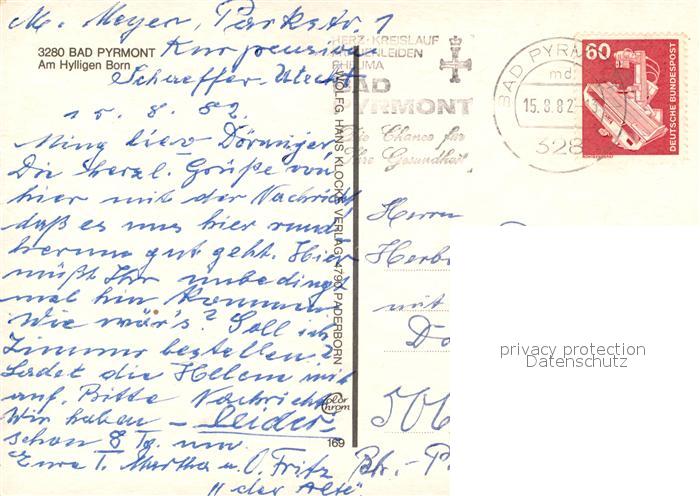 M. Meyer, Parkstr. 1
Kurpension
Schaeffer-Utecht
3280 BAD PYRMONT
Am Hylligen Born
15. 8. 82.
Meing liev Dörninger
Die herzl. Grüße von
hier mit der Nachricht
daß es uns hier rund-
herum gut geht. Hier
müßt Ihr unbedingt
mal hin kommen.
Wie wär's? Soll ich
Zimmer bestellen?
Ladet die Helene mit
auf. Bitte Nachricht.
Wir haben - leider -
schon 8 Tg. um
Eure T. Martha u. O. Fritz
"der Alte"
WOLFG. HANS KLOCKE VERLAG · 4790 PADERBORN
Color
Chrom
169
HERZ-KREISLAUF
FRAUENLEIDEN
RHEUMA
BAD
PYRMONT
Die Chance für
Ihre Gesundheit
BAD PYR
md
15.8.82
328
60
DEUTSCHE BUNDESPOST
Herrn
Herbe
mit
Dö
506
Bhr.-P
privacy protection
Datenschutz